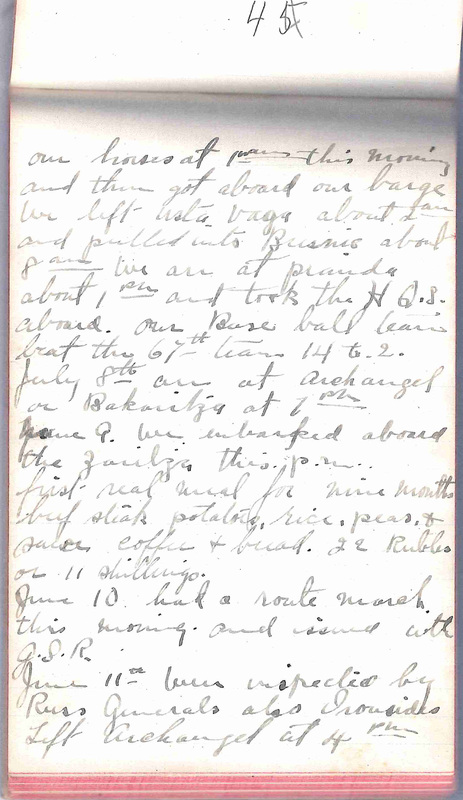 45
our horses at 1 am this morning
and then got aboard our barge
We left usta Vaga about 2 am
and pulled into Beresnic about
8 am We arr at pianda
about 1 pm and took the H Q.S.
aboard. our Base ball team
beat the 67th team 14 to 2.
July 8th arr at Archangel
or Bakaritza at 7 pm
June 9. We embarked aboard
the Zaritza this p.m..
first real meal for nine months
beef stiak potatoes, rice. peas. &
coffee & bread. 22 Rubles
or 11 shillings.
June 10 had a route march
this morning. and issued with
G.S.R.
June 11th Were inspected by
Russ Generals also Ironsides
Left Archangel at 4 pm